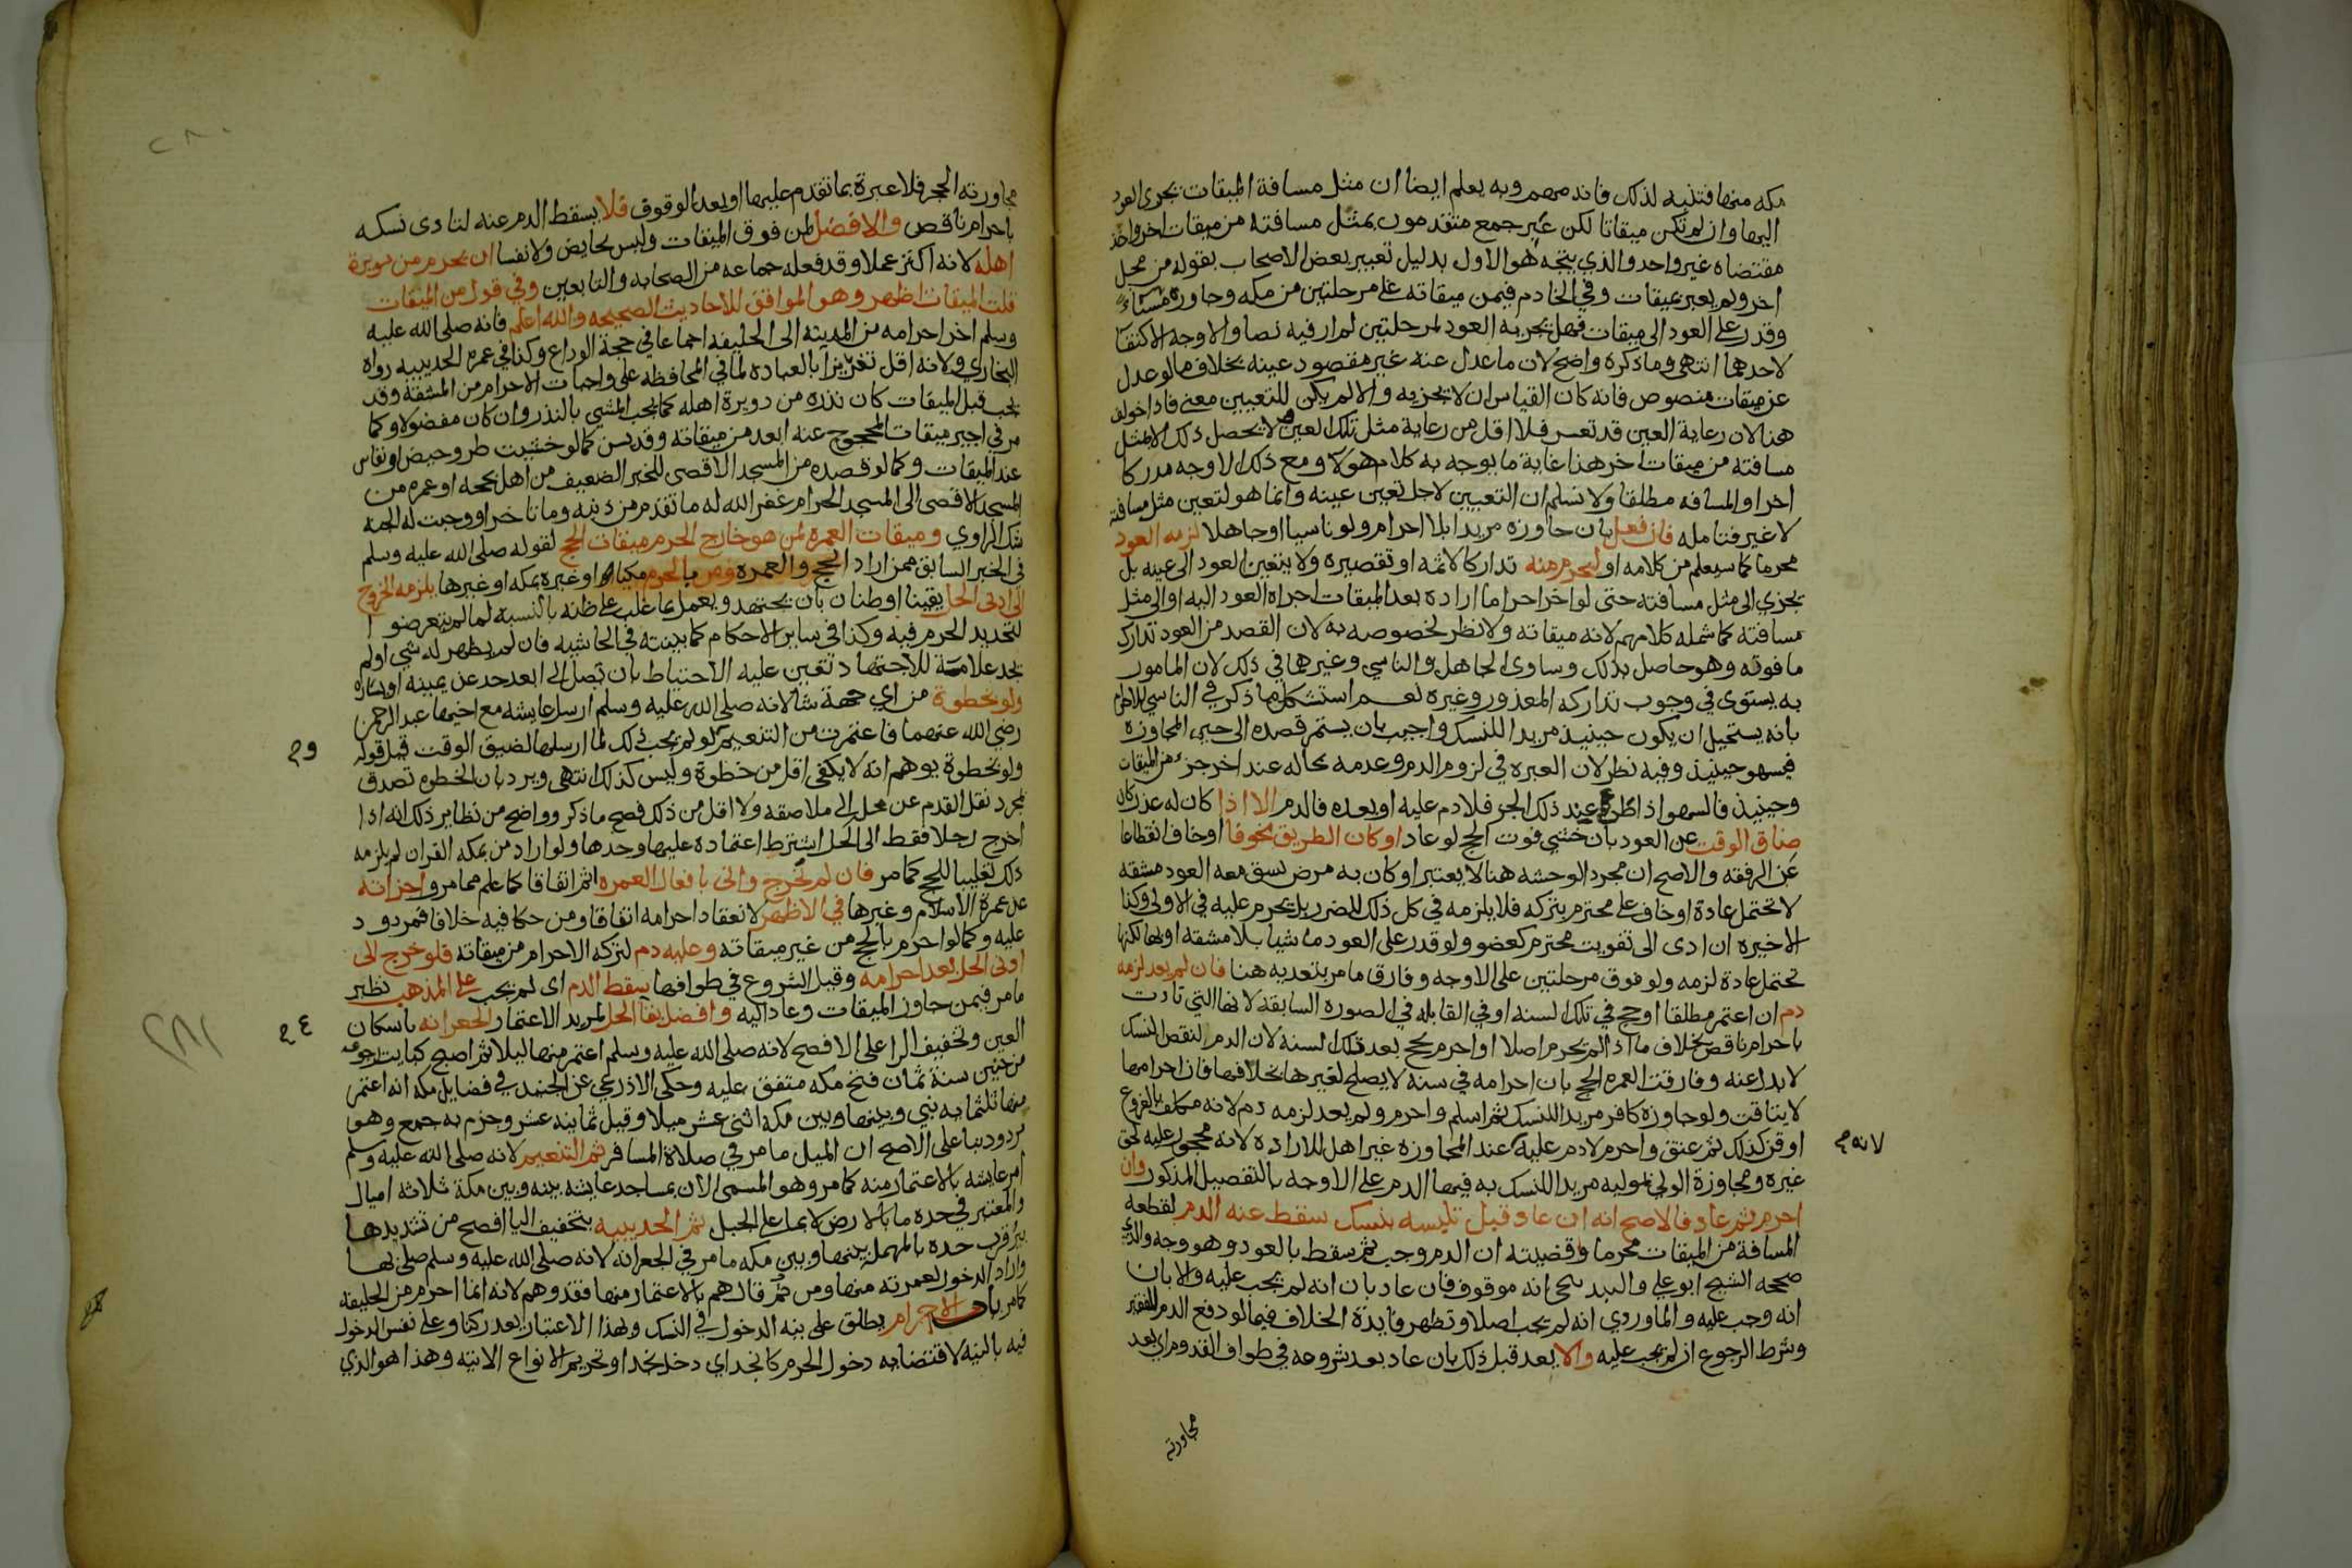 مكه منها فتنبه لذلك فانه مهم وبه يعلم ايضا ان مثل مسافة الميقات يجزي العود
اليها وان لم تكن ميقاتا لكن عبر جمع متقدمون بمثل مسافته من ميقات اخر واخذ
مقتضاه غير واحد والذي يتجه هو الاول بدليل تعبير بعض الاصحاب بقوله من محل
اخر ولم يعبر بميقات وفي الخادم فيمن ميقاته على مرحلتين من مكه وجاوزه مسيأ
وقدر على العود الى ميقات فهل يجزيه العود لمرحلتين لم ار فيه نصا والاوجه الاكتفا
لاحدهما انتهى وما ذكره واضح لان ما عدل عنه غير مقصود عينه بخلاف ما لو عدل
عن ميقات منصوص فانه كان القياس ان لا يجزيه والا لم يكن للتعيين معنى فاذا خولف
هنا لان رعاية العين قد تعسر فلا اقل من رعاية مثل تلك العين ولا يحصل ذلك الا بمثل
مسافته من ميقات اخر هذا غاية ما يوجه به كلام هولا ومع ذلك الاوجه مدركا
اخراو المسافه مطلقا ولا نسلم ان التعيين لاجل تعين عينه وانما هو لتعين مثل مسافته
لا غير فتامله فان فعل بان جاوزه مريدا بلا احرام ولو ناسيا او جاهلا لزمه العود
محرما كما سيعلم من كلامه او ليحرم منه تداركا لاثمه او تقصيره ولا يتعين العود الى عينه بل
يجزي الى مثل مسافته حتى لو اخر احراما اراده بعد الميقات اجزاه العود اليه او الى مثل
مسافته كما شمله كلامهم لانه ميقاته ولا نظر لخصوصه به لان القصد من العود تدارك
ما فوته وهو حاصل بذلك وساوى الجاهل والناسي وغيرهما في ذلك لان المامور
به يستوى في وجوب تداركه المعذور وغيره نعم استشكل ما ذكر في الناسي للاحرام
بانه يستحيل ان يكون حينيذ مريدا للنسك واجيب بان يستمر قصده الى حين المجاوزه
فيسهو حينيذ وفيه نظر لان العبره في لزوم الدم وعدمه بحاله عند اخر جزء من الميقات
وحينيذ فالسهو اذا طرا عند ذلك الجز فلا دم عليه او بعده فالدم الا اذا كان له عذر كان
ضاق الوقت عن العود بان خشي فوت الحج لو عاد او كان الطريق مخوفا او خاف انقطاعا
عن الرفقه والاصح ان مجرد الوحشه هنا لا يعتبر او كان به مرض يشق معه العود مشقه
لا تحتمل عادة او خاف على محترم بتركه فلا يلزمه في كل ذلك للضرر بل يحرم عليه في الاولى وكذا
الاخيره ان ادى الى تفويت محترم كعضو ولو قدر على العود ماشيا بلا مشقه او بها لكنها
تحتمل عادة لزمه ولو فوق مرحلتين على الاوجه وفارق ما مر بتعديه هنا فان لم يعد لزمه
دم ان اعتمر مطلقا او حج في تلك السنه او في القابله في الصورة السابقه لانها التي تادت
باحرام ناقص بخلاف ما اذا لم يحرم اصلا او احرم بحج بعد تلك السنه لان الدم لنقص النسك
لا بدل عنه وفارقت العمره الحج بان احرامه في سنه لا يصلح لغيرها بخلافها فان احرامها
لا يتاقت ولو جاوزه كافر مريدا للنسك ثم اسلم واحرم ولم يعد لزمه دم لانه مكلف بالفروع
او قن كذلك ثم عتق واحرم لا دم عليه عند المجاوزه غير اهل للاراده لانه محجور عليه لحق
لانه
غيره ومجاوزة الولي بموليه مريدا النسك به فيها الدم على الاوجه بالتفصيل المذكور وان
احرم ثم عاد فالاصح انه ان عاد قبل تلبسه بنسك سقط عنه الدم لقطعه
المسافة من الميقات محرما وقضيته ان الدم وجب ثم سقط بالعود وهو وجه والذي
صححه الشيخ ابو علي والبندنيجي انه موقوف فان عاد بان انه لم يجب عليه والا بان
انه وجب عليه والماوردي انه لم يجب اصلا وتظهر فايدة الخلاف فيما لو دفع الدم للفقير
وشرط الرجوع ان لم يجب عليه والا يعد قبل ذلك بان عاد بعد شروعه في طواف القدوم اي بعد
مجاورته
مجاورته الحجر فلا عبرة بما تقدم عليها او بعد الوقوف فلا يسقط الدم عنه لتادى نسكه
باحرام ناقص والافضل لمن فوق الميقات وليس بحايض ولا نفسا ان يحرم من دويرة
اهله لانه اكثر عملا وقد فعله جماعه من الصحابه والتابعين وفي قول من الميقات
قلت الميقات اظهر وهو الموافق للاحاديث الصحيحه والله اعلم فانه صلى الله عليه
وسلم اخر احرامه من المدينه الى الحليفه اجماعا في حجة الوداع وكذا في عمره الحديبيه رواه
البخاري ولانه اقل تغريرا بالعباده لما في المحافظه على واجبات الاحرام من المشقه وقد
يجب قبل الميقات كان نذره من دويرة اهله كما يجب المشي بالنذر وان كان مفضولا وكما
مر في اجير ميقات المحجوج عنه ابعد من ميقاته وقد يسن كما لو خشيت طرو حيض او نفاس
عند الميقات وكما لو قصده من المسجد الاقصى للخبر الضعيف من اهل بحجه او عمره من
المسجد الاقصى الى المسجد الحرام غفر الله له ما تقدم من ذنبه وما تاخر او وجبت له الجنه
شك الراوي وميقات العمره لمن هو خارج الحرم ميقات الحج لقوله صلى الله عليه وسلم
في الخبر السابق ممن اراد الحج والعمره ومن بالحرم مكيا او غيره بمكه او غيرها يلزمه الخروج
الى ادنى الحل يقينا او ظنا بان يجتهد ويعمل بما غلب على ظنه بالنسبه لما لم يتعرضوا
لتحديد الحرم فيه وكذا في ساير الاحكام كما بينته في الحاشيه فان لم يظهر له شي او لم
يجد علامة للاجتهاد تعين عليه الاحتياط بان يصل الى ابعد حد عن يمينه او يساره
ولو بخطوة من اي جهة شا لانه صلى الله عليه وسلم ارسل عايشه مع اخيها عبد الرحمن
رضي الله عنهما فاعتمرت من التنعيم ولو لم يجب ذلك لما ارسلها لضيق الوقت قيل قوله
ولو بخطوة يوهم انه لا يكفى اقل من خطوة وليس كذلك انتهى ويرد بان الخطوه تصدق
بمجرد نقل القدم عن محل الى ملاصقه ولا اقل من ذلك فصح ما ذكر وواضح من نظاير ذلك انه اذا
اخرج رجلا فقط الى الحل اشترط اعتماده عليها وحدها ولو اراد من بمكه القران لم يلزمه
ذلك تغليبا للحج كما مر فان لم يخرج واتى بافعال العمره اثم اتفاقا كما علم مما مر واجزاته
عن عمرة الاسلام وغيرها في الاظهر لانعقاد احرامه اتفاقا ومن حكا فيه خلافا فمردود
عليه وكما لو احرم بالحج من غير ميقاته وعليه دم لتركه الاحرام من ميقاته فلو خرج الى
ادنى الحل بعد احرامه وقبل الشروع في طوافها سقط الدم اى لم يجب على المذهب نظير
ما مر فيمن جاوز الميقات وعاد اليه وافضل بقاع الحل لمريد الاعتمار الجعرانه باسكان
العين وتخفيف الرا على الافصح لانه صلى الله عليه وسلم اعتمر منها ليلا ثم اصبح كبايت
من حنين سنة ثمان فتح مكه متفق عليه وحكى الاذرعي عن الجندي في فضايل مكه انه اعتمر
منها ثلثمايه نبي وبينها وبين مكه اثنى عشر ميلا وقيل ثمانيه عشر وجزم به جمع وهو
مردود بنا على الاصح ان الميل ما مر في صلاة المسافر ثم التنعيم لانه صلى الله عليه وسلم
امر عايشه بالاعتمار منه كما مر وهو المسمى الان بمساجد عايشه بينه وبين مكة ثلاثه اميال
والمعتبر في حده ما بالارض لا بما على الجبل ثم الحديبيه بتخفيف اليا افصح من تشديدها
بير قرب حده بالمهمله بينها وبين مكه ما مر في الجعرانه لانه صلى الله عليه وسلم صلى بها
واراد الدخول لعمرته منها ومن ثم قال هم بالاعتمار منها فقد وهم لانه انما احرم من الحليفه
كما مر باب الاحرام يطلق على نيه الدخول في النسك وبهذا الاعتبار يعد ركنا وعلى نفس الدخول
فيه بالنيه لاقتضايه دخول الحرم كانجد اي دخل نجدا وتحريم الانواع الاتيه وهذا هو الذي